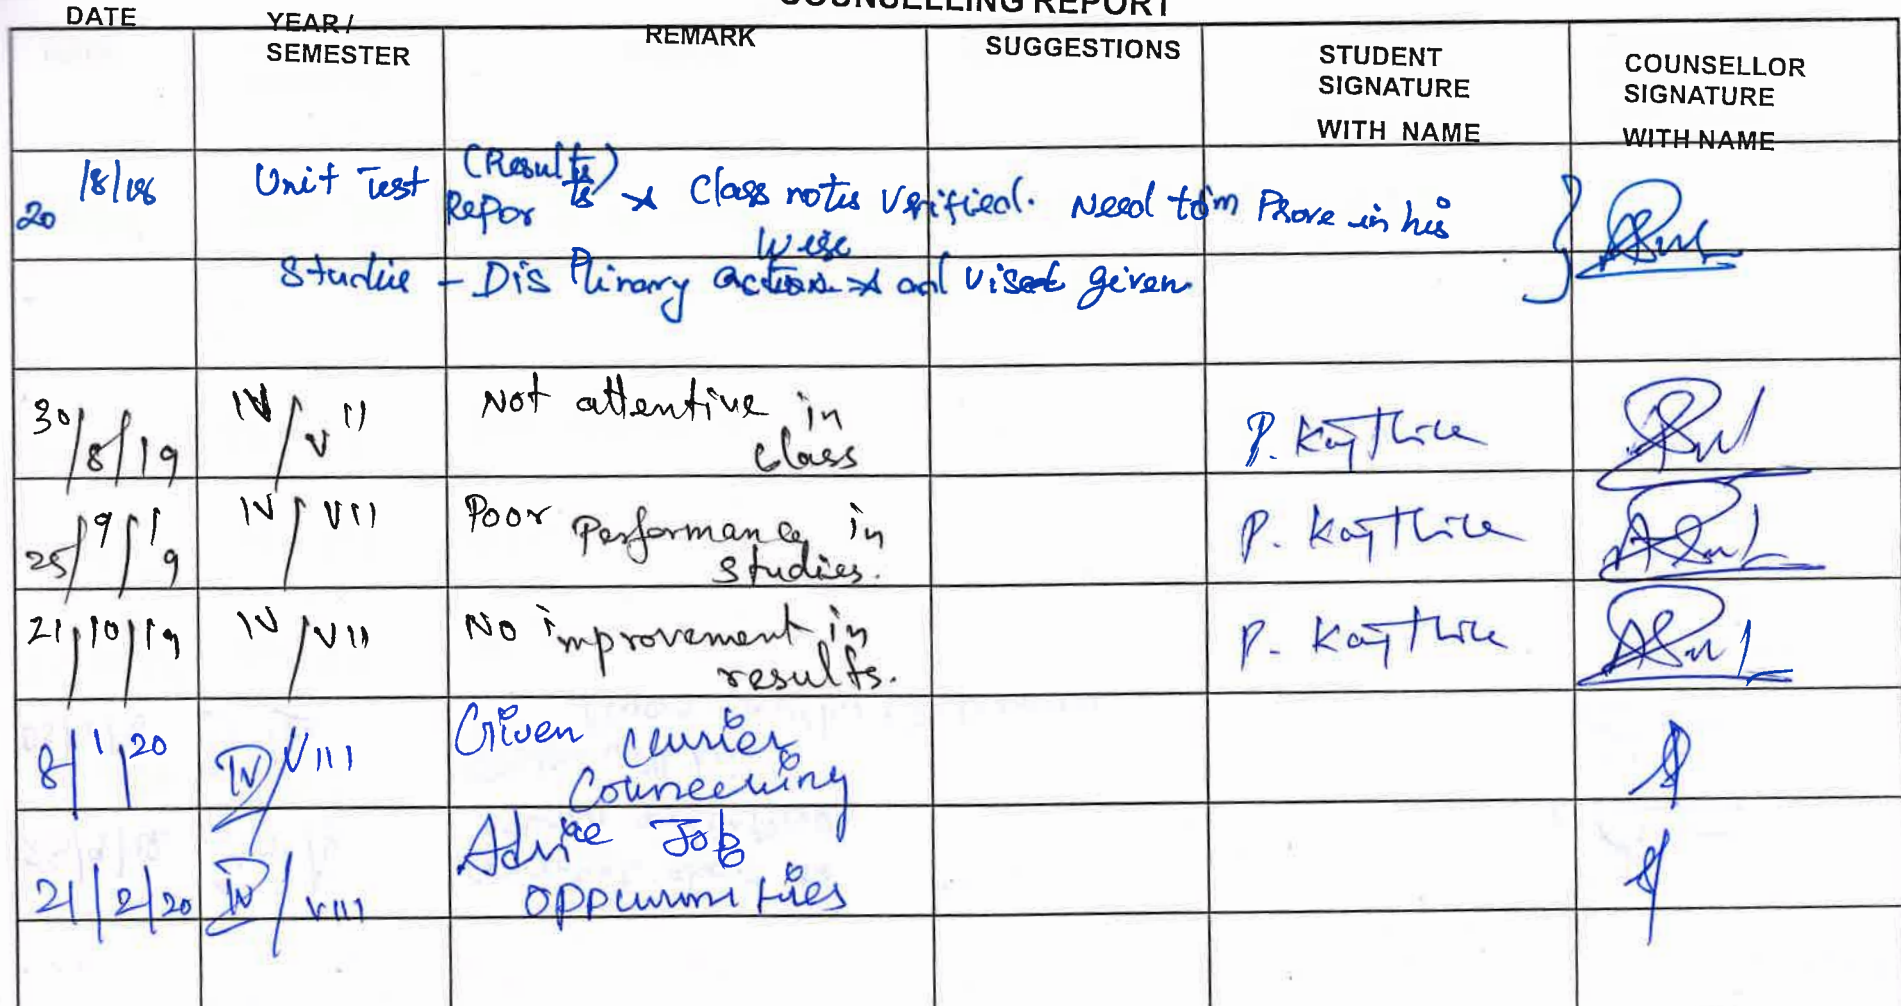 COUNSELLING REPORT
DATE YEAR / SEMESTER REMARK SUGGESTIONS STUDENT SIGNATURE WITH NAME COUNSELLOR SIGNATURE WITH NAME
20 /8/ Unit Test (Results) Repor ts Class notes Verified. Need to im Prove in his
Studie - Dis Plinary action Wise and given
30/8/19 IV / VII Not attentive in class
25/9/19 IV / VII Poor Performance in studies.
21/10/19 IV / VII No improvement in results.
8/1/20 IV / VIII Given
21/2/20 IV / VIII Job